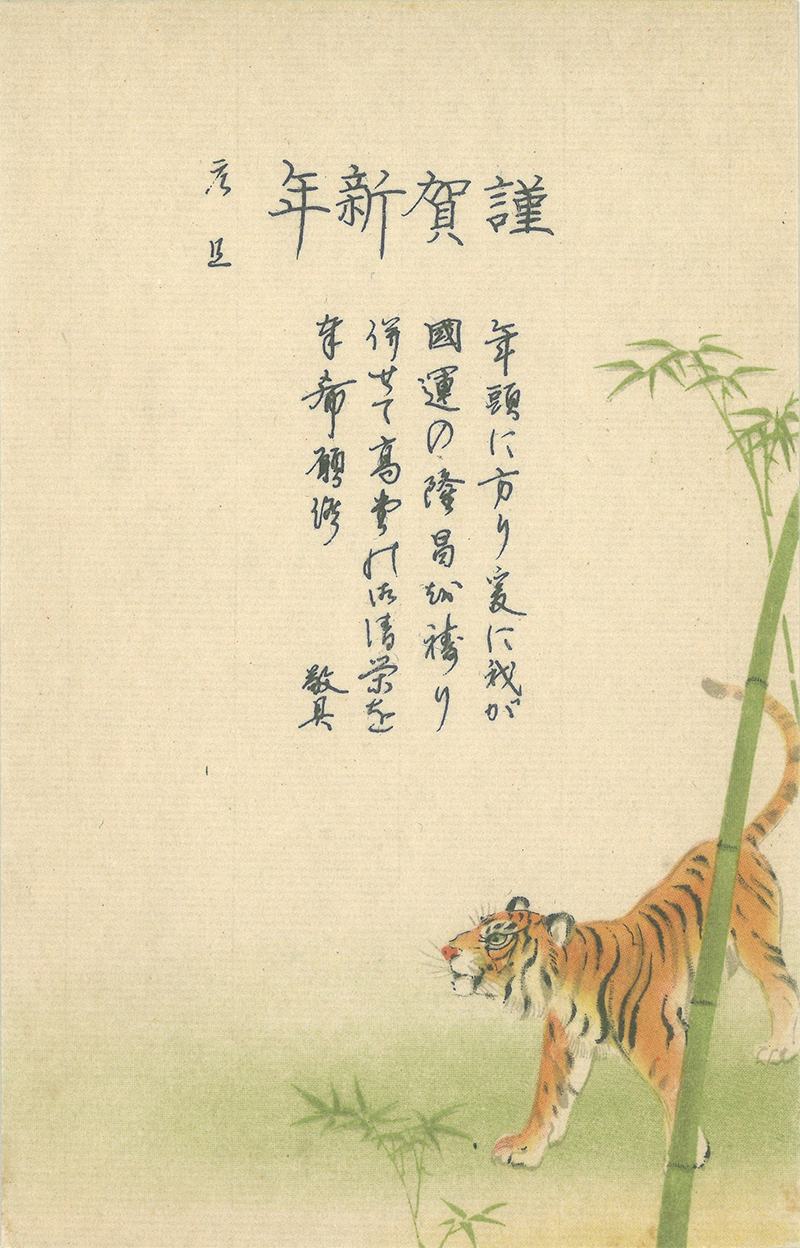 謹賀新年
年頭に方り爰に我が
國運の隆昌を祷り
併せて高堂の御清栄を
奉希願候
敬具
旦